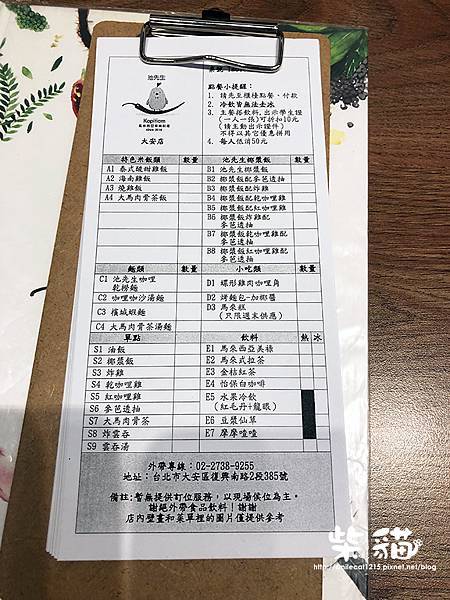 池先生
Kopitiam
大安店
點餐小提醒：
1. 請先至櫃檯點餐、付款
2. 冷飲皆無法去冰
3. 主餐搭飲料,出示學生證
(一人一張)可折扣10元
(請主動出示證件)
不得以其它優惠併用
4. 每人低消50元
特色米飯類 數量 池先生椰漿飯 數量
A1 泰式酸甜雞飯 B1 池先生椰漿飯
A2 海南雞飯 B2 椰漿飯配參笆透抽
A3 燒雞飯 B3 椰漿飯配炸雞
A4 大馬肉骨茶飯 B4 椰漿飯配乾咖哩雞
B5 椰漿飯配紅咖哩雞
B6 椰漿飯炸雞配
參笆透抽
B7 椰漿飯乾咖哩雞配
參笆透抽
B8 椰漿飯紅咖哩雞配
參笆透抽
麵類 數量 小吃類 數量
C1 池先生咖哩
乾撈麵
D1 螺形雞肉咖哩角
C2 咖哩咖沙湯麵 D2 烤麵包-加椰醬
C3 檳城蝦麵 D3 馬來糕
(只限週末供應)
C4 大馬肉骨茶湯麵
單點 數量 飲料 熱 冰
S1 油飯 E1 馬來西亞美祿
S2 椰漿飯 E2 馬來式拉茶
S3 炸雞 E3 金桔紅茶
S4 乾咖哩雞 E4 怡保白咖啡
S5 紅咖哩雞 E5 水果冷飲
(紅毛丹+龍眼)
S6 參笆透抽
S7 大馬肉骨茶 E6 豆漿仙草
S8 炸雲吞 E7 摩摩喳喳
S9 雲吞湯
外帶專線：02-2738-9255
地址：台北市大安區復興南路2段385號
備註:暫無提供訂位服務，以現場候位為主。
謝絕外帶食品飲料！謝謝
店內壁畫和菜單裡的圖片僅提供參考
柴貓
http://smilecat1215.pixnet.net/blog